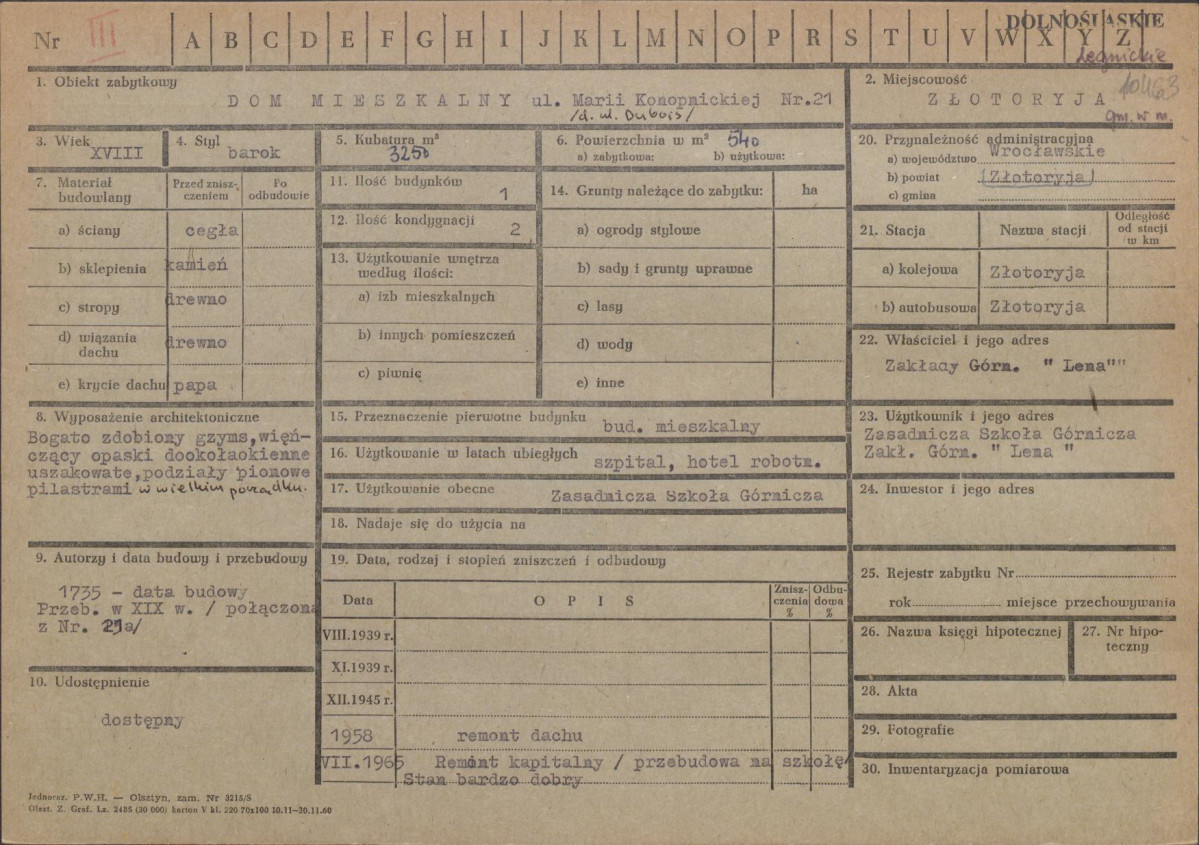 DOLNOŚLĄSKIE
Nr III A B C D E F G H I J K L M N O P R S T U V W X Y Z
Legnickie
1. Obiekt zabytkowy
DOM MIESZKALNY ul. Marii Konopnickiej Nr.21
/d. ul. Dubois/
2. Miejscowość
10463
ZŁOTORYJA
gm. w m.
3. Wiek
XVIII
4. Styl
barok
5. Kubatura m³
3250
6. Powierzchnia w m² 540
a) zabytkowa: b) użytkowa:
20. Przynależność administracyjna
a) województwo Wrocławskie
b) powiat (Złotoryja)
c) gmina
7. Materiał budowlany
Przed znisz-
czeniem
Po
odbudowie
a) ściany cegła
b) sklepienia kamień
c) stropy drewno
d) wiązania
dachu drewno
e) krycie dachu papa
11. Ilość budynków 1
12. Ilość kondygnacji 2
13. Użytkowanie wnętrza
według ilości:
a) izb mieszkalnych
b) innych pomieszczeń
c) piwnic
14. Grunty należące do zabytku: ha
a) ogrody stylowe
b) sady i grunty uprawne
c) lasy
d) wody
e) inne
21. Stacja Nazwa stacji
Odległość
od stacji
w km
a) kolejowa Złotoryja
b) autobusowa Złotoryja
22. Właściciel i jego adres
Zakłady Górn. " Lena""
8. Wyposażenie architektoniczne
Bogato zdobiony gzyms,więń-
czący opaski dookołaokienne
uszakowate,podziały pionowe
pilastrami w wielkim porządku.
15. Przeznaczenie pierwotne budynku bud. mieszkalny
16. Użytkowanie w latach ubiegłych szpital, hotel robotn.
17. Użytkowanie obecne Zasadnicza Szkoła Górnicza
18. Nadaje się do użycia na
23. Użytkownik i jego adres
Zasadnicza Szkoła Górnicza
Zakł. Górn. " Lena "
24. Inwestor i jego adres
9. Autorzy i data budowy i przebudowy
1735 - data budowy
Przeb. w XIX w. / połączona
z Nr. 21a/
10. Udostępnienie
dostępny
19. Data, rodzaj i stopień zniszczeń i odbudowy
Data OPIS
Znisz-
czenia
%
Odbu-
dowa
%
VIII.1939 r.
XI.1939 r.
XII.1945 r.
1958 remont dachu
VII.1965 Remont kapitalny / przebudowa na szkołę/
Stan bardzo dobry
25. Rejestr zabytku Nr
rok miejsce przechowywania
26. Nazwa księgi hipotecznej
27. Nr hipo-
teczny
28. Akta
29. Fotografie
30. Inwentaryzacja pomiarowa
Jednoraz. P.W.H. — Olsztyn, zam. Nr 3215/S
Olszt. Z. Graf. Lz. 2485 (30 000) karton V kl. 220 70x100 10.11—30.11.60